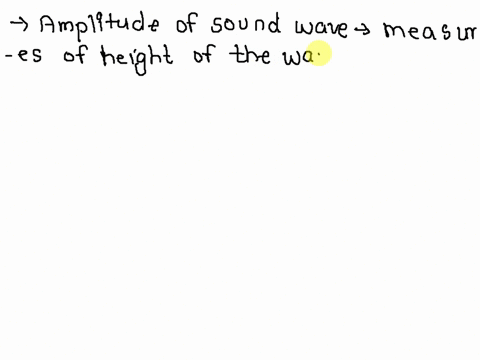 → Amplitude of sound wave → measur
-es of height of the wa